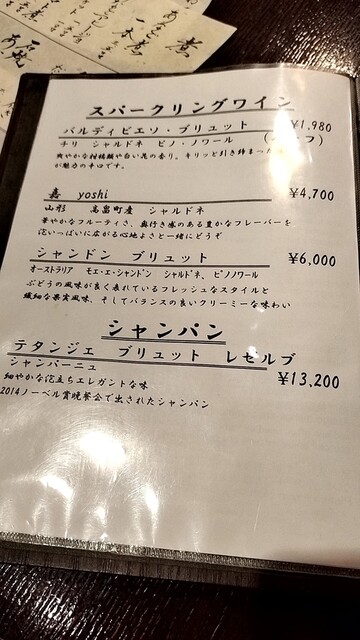 スパークリングワイン
バルディビエソ・ブリュット ¥1,980
チリ シャルドネ ピノ・ノワール
爽やかな柑橘類や白い花の香り。キリッと引き締まった
が魅力の辛口です。
嘉 yoshi ¥4,700
山形 高畠町産 シャルドネ
華やかなフルーティさ、奥行き感のある豊かなフレーバーを
泡いっぱいに広がる心地よさと一緒にどうぞ
シャンドン ブリュット ¥6,000
オーストラリア モエ・エ・シャンドン シャルドネ、ピノノワール
ぶどうの風味が良く表れているフレッシュなスタイルと
繊細な果実風味、そしてバランスの良いクリーミーな味わい
シャンパン
テタンジェ ブリュット レゼルブ
シャンパーニュ ¥13,200
細やかな泡立ちエレガントな味
2014ノーベル賞晩餐会で出されたシャンパン